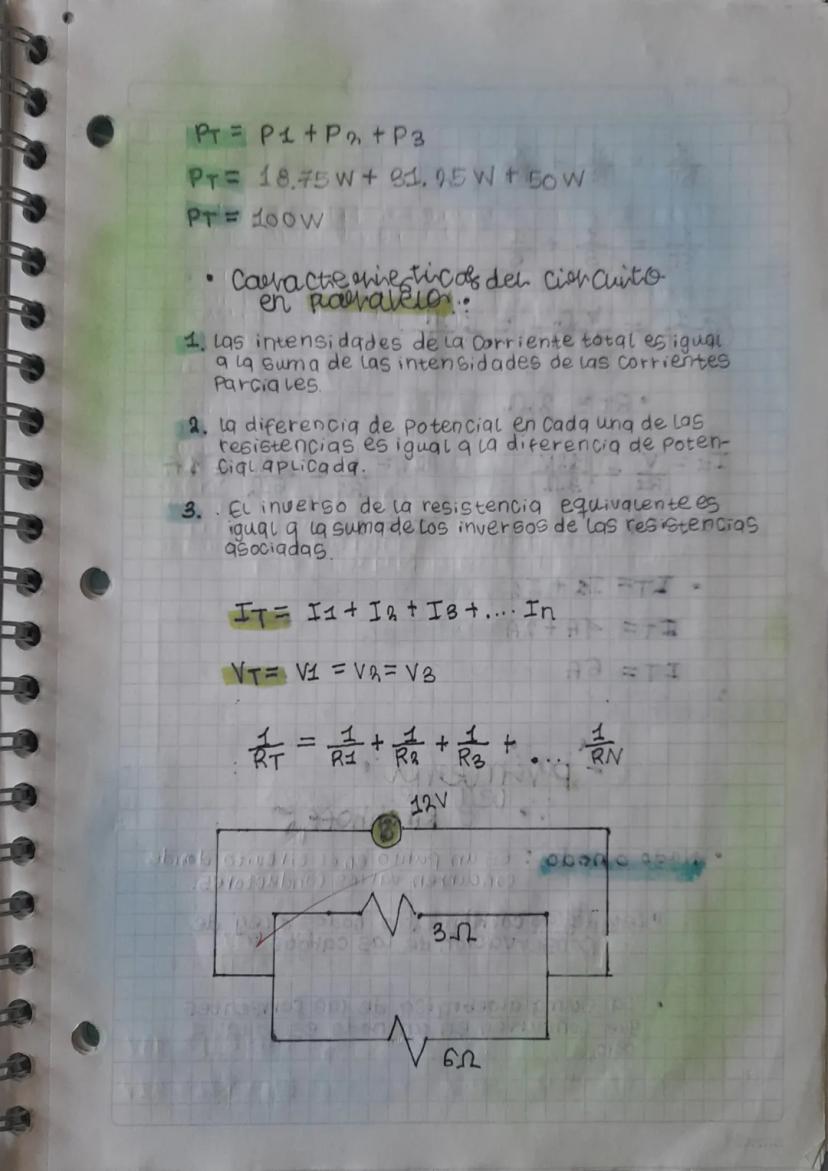 PT = P1 + P2 + P3
PT = 18.75W + 31.25W + 50W
PT = 100W
• Características del circuito
en paralelo:
1. Las intensidades de la corriente total es igual
a la suma de las intensidades de las corrientes
parciales.
2. la diferencia de potencial en cada una de las
resistencias es igual a la diferencia de poten-
cial aplicada.
3. . El inverso de la resistencia equivalente es
igual a la suma de los inversos de las resistencias
asociadas.
IT = I1 + I2 + I3 + .... In
VT = V1 = V2 = V3
1/RT = 1/R1 + 1/R2 + 1/R3 + .... 1/RN
12V
3Ω
6Ω